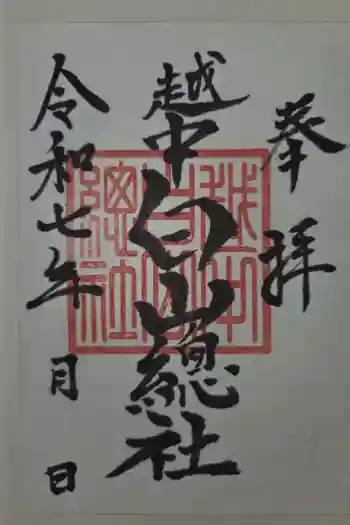 奉拝
越中白山總社
越中白山總社
令和七年 月 日